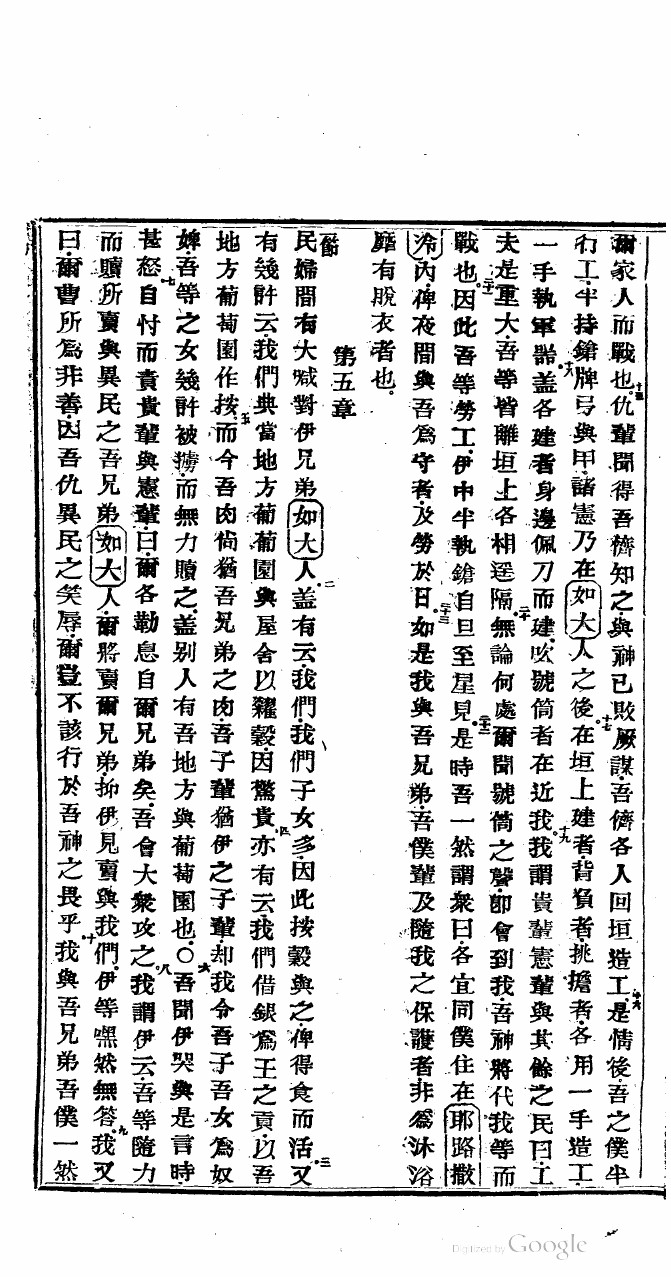 爾家人而戰也仇輩聞得吾儕知之與神已敗厥謀吾儕各人回垣造工是情後吾之僕半
行工半持鎗牌弓與甲諸憲乃在如大人之後在垣上建者背負者挑擔者各用一手造工
一手執軍器盖各建者身邊佩刀而建吹號筒者在近我我謂貴輩憲輩與其餘之民曰工
夫是重大吾等皆離垣上各相遥隔無論何處爾聞號筒之聲卽會到我吾神將代我等而
戰也因此吾等勞工伊中半執鎗自旦至星見是時吾一然謂衆曰各宜同僕住在耶路撒
冷內俾夜間與吾爲守者及勞於日如是我與吾兄弟吾僕輩及隨我之保護者非爲沐浴
靡有脫衣者也
第五章
節
民婦間有大喊對伊兄弟如大人盖有云我們我們子女多因此按穀與之俾得食而活又
有幾許云我們典當地方葡萄園與屋舍以糴穀因驚貴亦有云我們借銀爲王之貢以吾
地方葡萄園作按而今吾肉尚猶吾兄弟之肉吾子輩猶伊之子輩却我令吾子吾女爲奴
婢吾等之女幾許被擄而無力贖之盖别人有吾地方與葡萄園也〇吾聞伊哭與是言時
甚怒自忖而責貴輩與憲輩曰爾各勒息自爾兄弟矣吾會大衆攻之我謂伊云吾等隨力
而贖所賣與異民之吾兄弟如大人爾將賣爾兄弟抑伊見賣與我們伊等嘿然無答我又
曰爾曹所爲非善因吾仇異民之笑辱爾豈不該行於吾神之畏乎我與吾兄弟吾僕一然
Digitized by Google